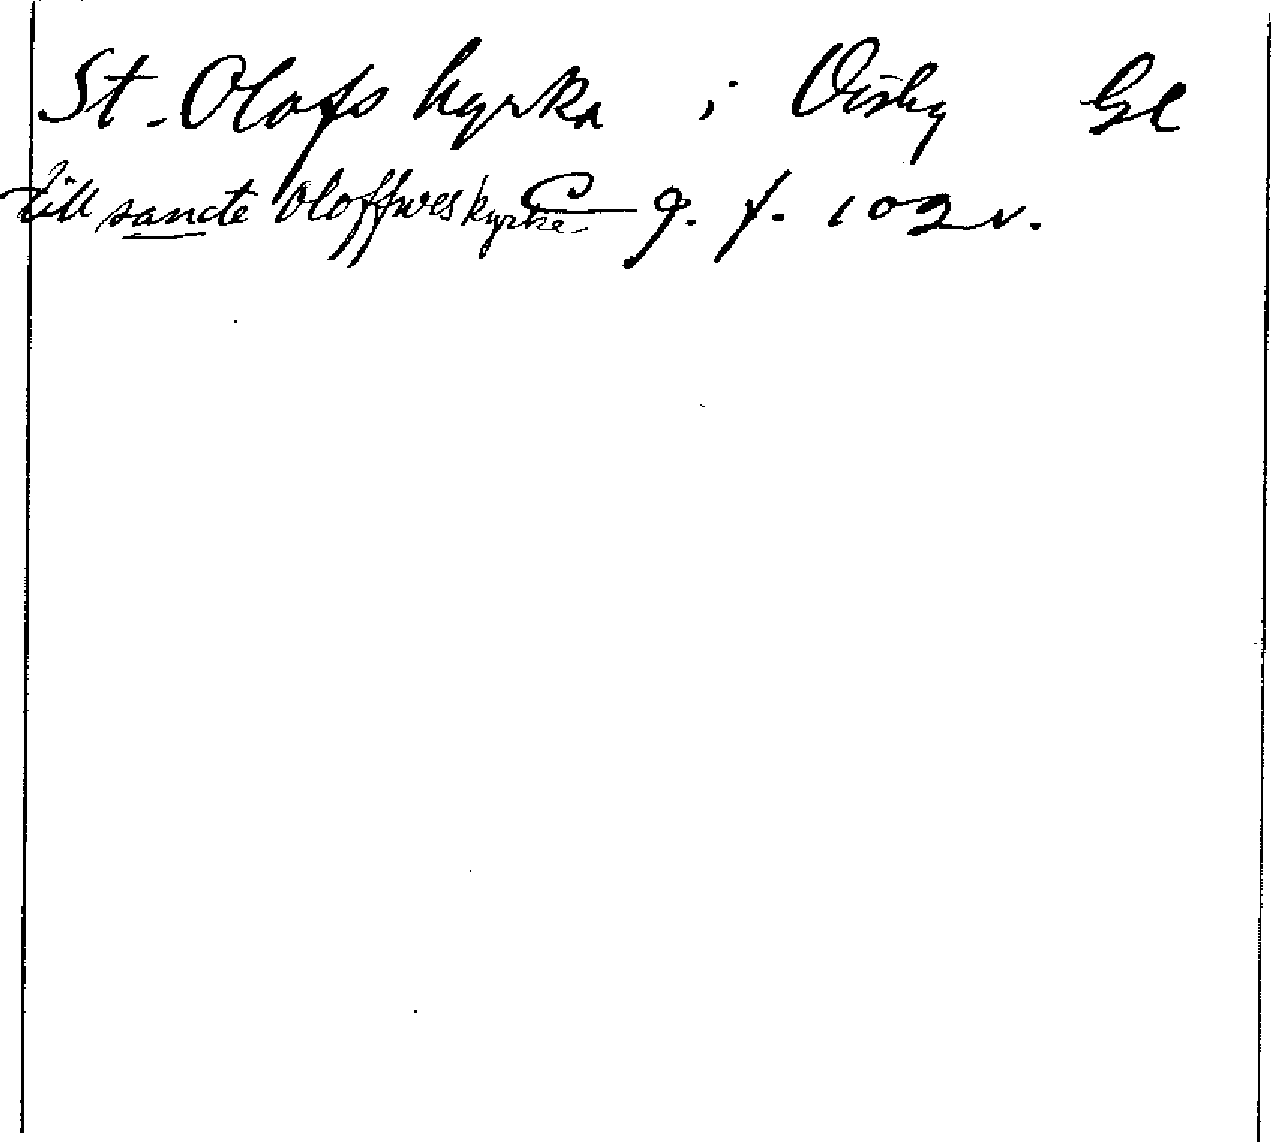 St. Olofs kyrka i Visby Gl
till sancte Oloffwes kyrke C 9. f. 102 v.